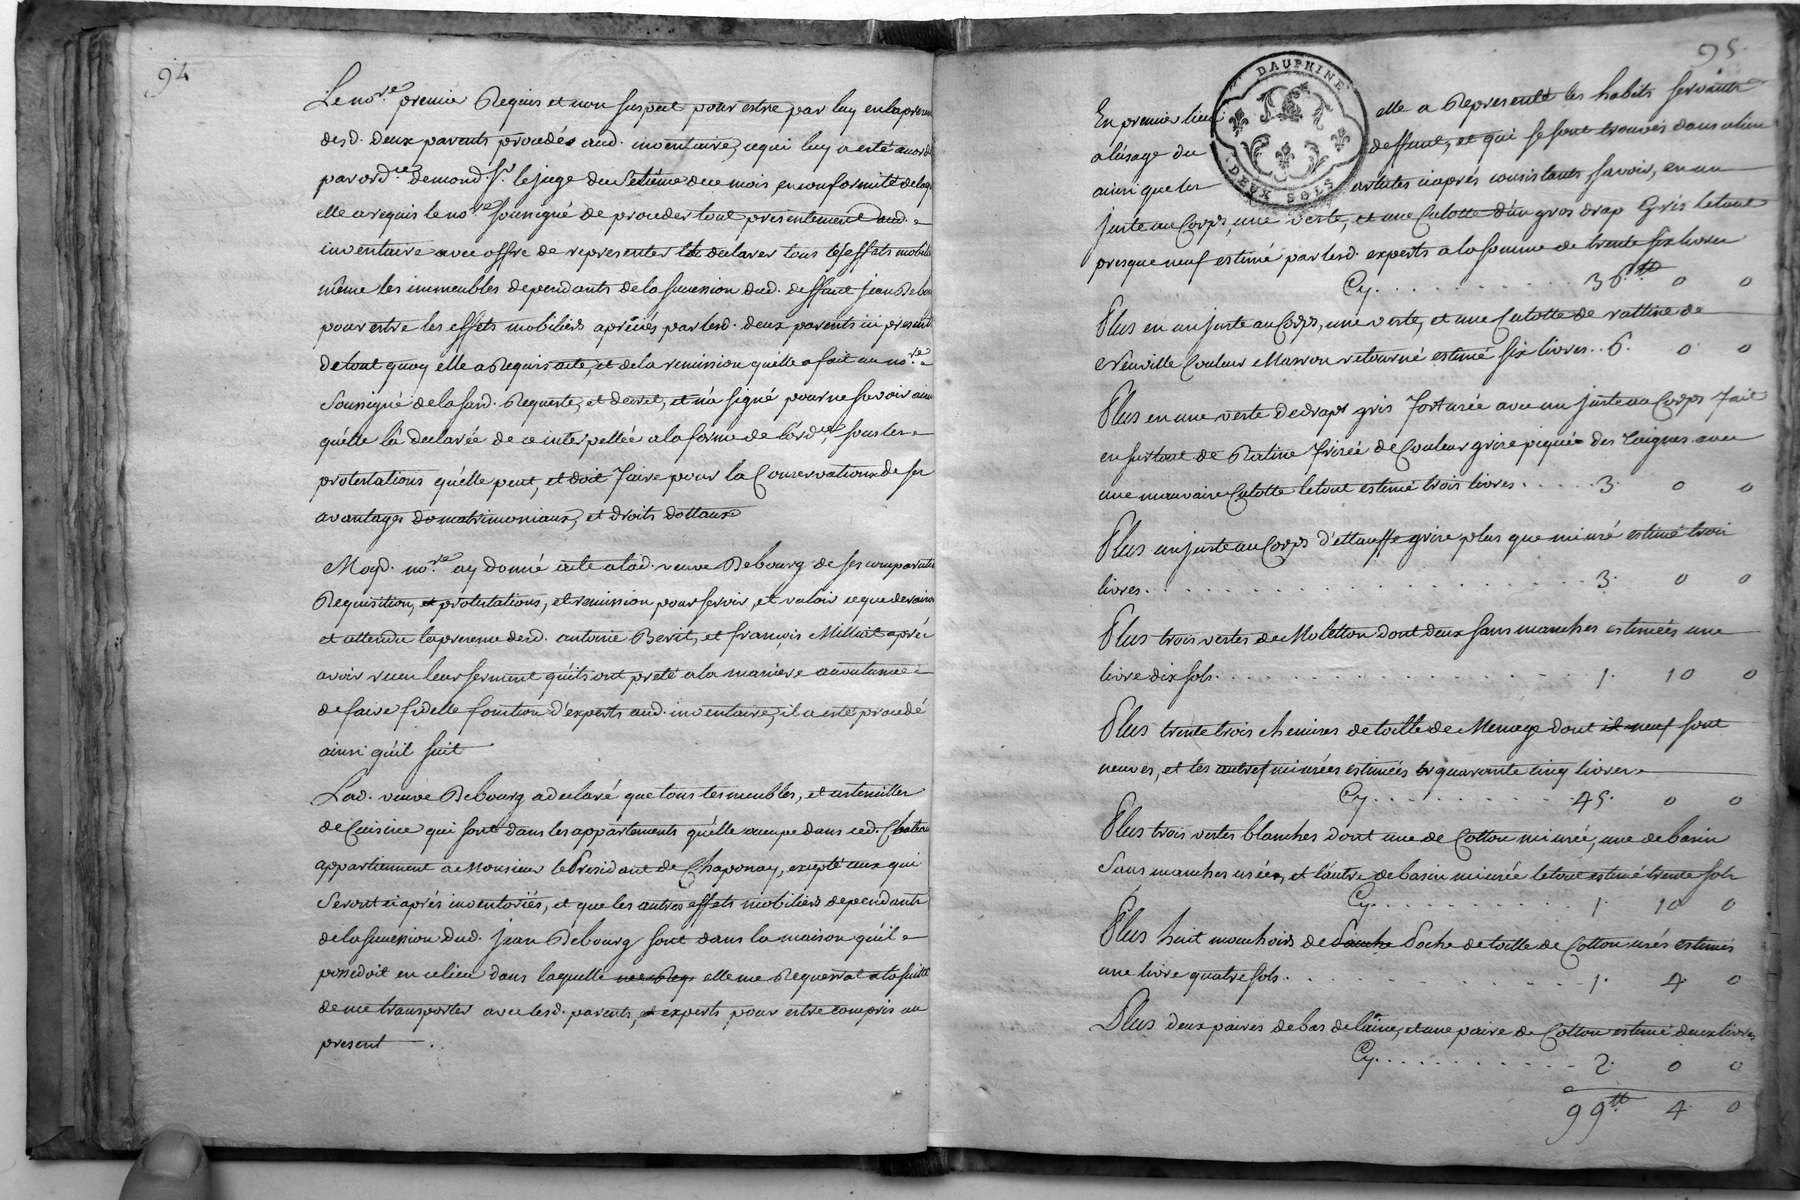 94
Le no.re premier Requis et non suspect pour estre par luy en la presen
desd. deux parents procedés aud. inventaire, ce qui luy a esté accordé
par ord.ce de mond. S.r le juge du setième de ce mois en conformité de laq.
elle a requis le no.re soussigné de proceder tout presentement aud.
inventaire avec offre de representer et declarer tous les effets mobili
même les immeubles dependants de la succession dud. deffunt jean Debou
pour estre les effets mobiliers apréciés par lesd. deux parents icy present
de tout quoy elle a Requis acte, et de la remission quelle a fait au no.re
soussigné de la susd. Requeste, et decret, et n'a signé pour ne sçavoir ain
quelle l'a declarée de ce interpellée a la forme de l'ord.ce, sous les
protestations qu'elle peut, et doit faire pour la Conservations de ses
avantages domatrimoniaux, et droits dottaux
Moyd. no.re ay donné acte a lad. veuve Debourg de ses comparution
Requisition, et protestations, et remission pour servir, et valoir ce que de raison
et attendu la presence desd. antoine Berit, et françois Milliat aprés
avoir receu leur serment qu'ils ont preté a la maniere accoutumée
de faire fidelle fonction d'experts aud. inventaire, il a esté procedé
ainsi qu'il suit
Lad. veuve Debourg a declaré que tous les meubles, et ustenciller
de Cuisine qui sont dans les appartements qu'elle occupe dans ced. Chateau
appartiennent a Monsieur le President de Chaponay, excepté ceux qui
seront ci aprés inventoriés, et que les autres effets mobiliers dependants
de la succession dud. jean Debourg sont dans la maison qu'il
possedoit en ce lieu dans laquelle me Req elle me Requerrat a la suitte
de me transporter avec lesd. parents, et experts pour estre compris au
present .
95.
DAUPHINE
DEUX SOLS
En premier lieu elle a Representé les habits servants
a l'usage du deffunt, et qui se sont trouvés dans
ainsi que les articles ci aprés consistants, sçavoir, en un
juste au Corps, une veste, et une Culotte d'un gros drap Gris le tout
presque neuf estimé par lesd. experts a la somme de trente six livres
Cy. . . . . . . . . . 36tt 0 0
Plus en un juste au Corps, une veste, et une Culotte de rattine de
Neuville Couleur Marron retourné estimé six livres . . 6. 0 0
Plus en une veste de drap gris fort usée avec un juste au Corps fait
en surtout de Ratine frizée de Couleur grise piquée des taignes avec
une mauvaise Culotte le tout estimé trois livres . . . . . 3. 0 0
Plus un juste au Corps d'ettauffe grise plus que mi usé estimé trois
livres . . . . . . . . . . . . . . . . 3. 0 0
Plus trois vestes de Moletton dont deux sans manches estimées une
livre dix sols . . . . . . . . . . . . . . . . 1. 10 0
Plus trente trois chemises de toille de Menage dont il neuf sont
neuves, et les autres mi usées estimées quarante cinq livres
Cy . . . . . . . . . . 45. 0 0
Plus trois vestes blanches dont une de Cotton mi usée, une de basin
sans manches usée, et l'autre de basin mi usée le tout estimé trente sols
Cy . . . . . . . . . . 1. 10 0
Plus huit mouchoirs de Pauche Poche de toille de Cotton usés estimés
une livre quatre sols . . . . . . . . . . . . . 1. 4 0
Plus deux paires de bas de laine, et une paire de Cotton estimé deux livres
Cy . . . . . . . . . . 2. 0 0
99tt 4 0